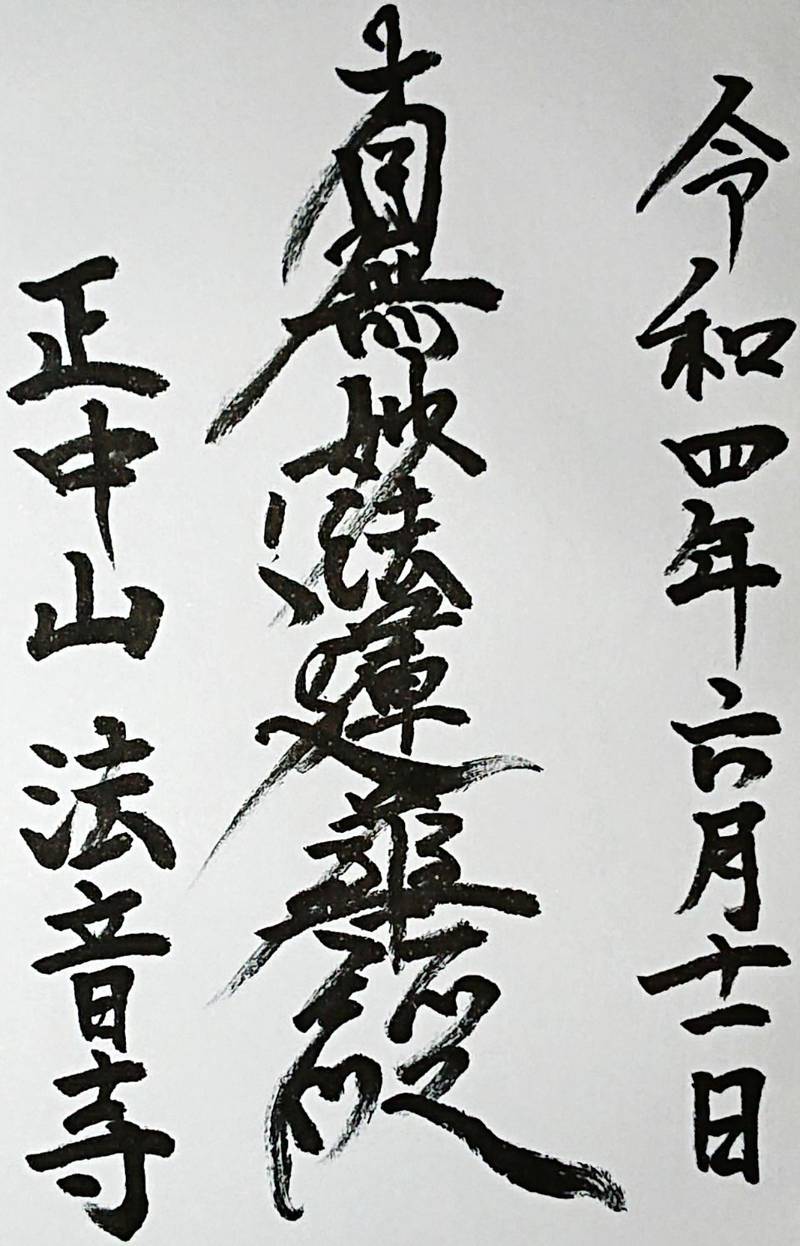 令和四年六月十一日
南無妙法蓮華経
正中山 法音寺